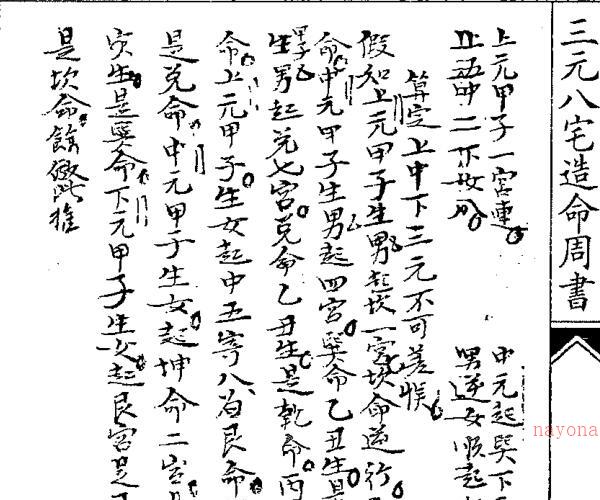 三元八宅造命周書
上元甲子一宮連
中元起巽下
男逆女順起
算定上中下三元不可差悮
假如上元甲子生男起坎一宮坎命逆行
命中元甲子生男起四宮巽命乙丑生是
生男起兌七宮兌命乙丑生是乾命丙
命上元甲子生女起中五寄八為艮命
是兌命中元甲子生女起坤命二宮
寅生是巽命下元甲子生女起艮宮是
是坎命餘倣此推
nayona